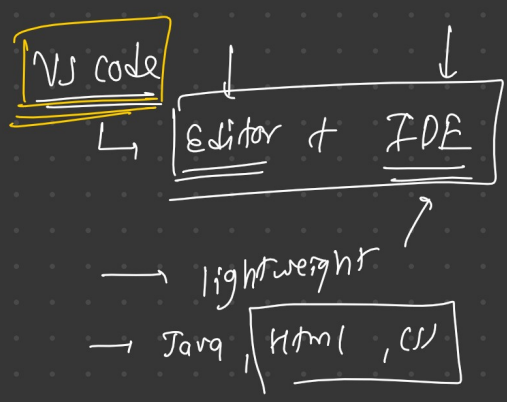 VS code
Editor + IDE
lightweight
Java, Html, CSS